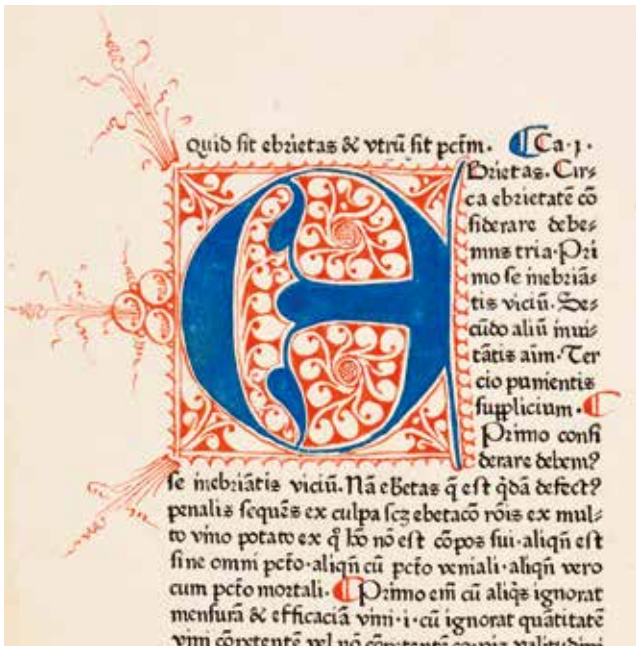 Quid sit ebrietas & vtrū sit pctm̄. Ca·j·
EBrietas. Cir⸗
ca ebrietatē cō
siderare debe⸗
mus tria·Pri
mo se inebriā⸗
tis viciū. Se⸗
cūdo aliū inui⸗
tātis aīm·Ter
cio punientis
supplicium·
Primo consi
derare debem?
se inebriātis viciū. Nā ebetas q̄ est q̄dā defect?
penalis sequēs ex culpa scz ebetacō rōis ex mul⸗
to vino potato ex q̄ hō nō est cōpos sui·aliqn̄ est
sine omni pctō·aliqn̄ cū pctō veniali·aliqn̄ vero
cum pctō mortali. Primo em̄ cū aliq̄s ignorat
mensurā & efficaciā vini·i·cū ignorat quātitatē
vini cōpetentē vel nō